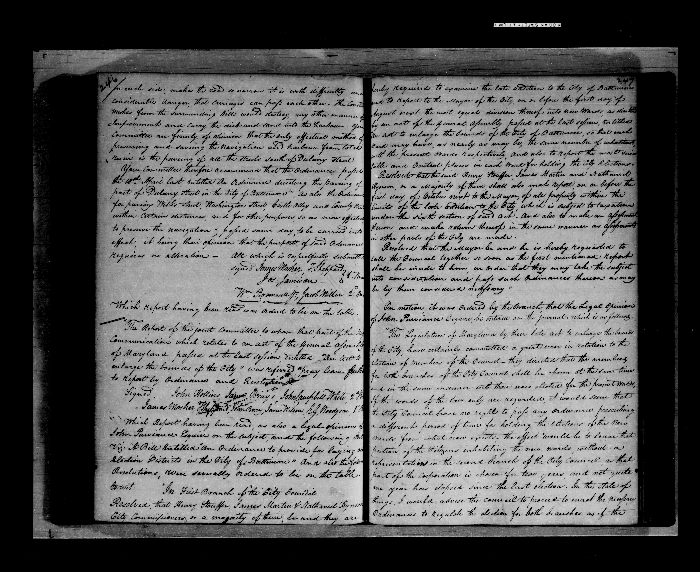 246
on each side, makes the road so narrow it is with difficulty and
considerable danger that carriages can pass each other. The
water from the surrounding hills would destroy any other manner of
improvement and carry the sand and mud into the harbour. Your
Committee are firmly of opinion that the only effectual method of
preserving and saving the navigation and harbour from total
ruin is the paving of all the streets south of Dulany Street
Your Committee therefore recommend that the Ordinances passed
the 10th April last entitled An Ordinance directing the paving of
part of Dulany Street in the City of Baltimore. As also the Ordinance
for paving Wills Street, Washington Street, Castle Alley and
within certain distances, and for other purposes so as more effectually
to preserve the navigation, passed same day to be carried into
effect, it being their opinion that the purport of said Ordinances
requires no alteration — All which is respectfully submitted
signed James Mosher T. Sheppard
Jas Jamison
Jacob Miller
Which Report having been read was ordered to lie on the table
The Report of the joint Committee to whom that part of the
Communication which relates to an act of the General Assembly
of Maryland passed at the last session entitled "An Act to
enlarge the bounds of the City" was referred "beg leave
to report by Ordinances and Resolutions
Signed John Hollins James Carey John Campbell White
James Mosher
Which Report having been read, as also a legal opinion of
John Purviance Esquire on the subject, and the following
viz: A Bill Entitled "An Ordinance to provide for laying
Election Districts in the City of Baltimore" And also the
Resolutions, were severally ordered to lie on the table
to wit. In First Branch of the City Council
Resolved, that Henry Stouffer James Martin & Nathaniel Hynson
City Commissioners, or a majority of them, be and they are
247
hereby required to examine the late addition to the City of Baltimore
and to report to the Mayor of the City, on or before the first day of
August next the most equal division thereof, into new Wards as directed
by an act of the General Assembly passed at the last session, entitled
An act to enlarge the bounds of the City of Baltimore, so that each
ward may have, as nearly as may be, the same number of inhabitants
with the present Wards respectively, and also to report the most
suitable and central places in each Ward for holding the City Elections
Resolved that the said Henry Stouffer James Martin and Nathaniel
Hynson, or a majority of them shall also make report on or before the
first day of October next to the Mayor of all property within the
limits of the late addition to the City which is subject to taxation
under the sixth section of said Act. And also to make an assessment
thereof and make return thereof in the same manner as assessments
in other parts of the City are made.
Resolved that the Mayor be and he is hereby requested to
call the Council together as soon as the first mentioned Report
shall be made to him in order that they may take the subject
into consideration and pass such Ordinances thereon as may
be by them considered necessary.
On motion it was ordered by the Branch, that the Legal Opinion
of John Purviance Esquire be entered on the journal which is as follows.
The Legislature of Maryland by their late act to enlarge the bounds
of the City, have certainly committed a great error in relation to the
election of members of the Council — they directed that the members
for both branches of the City Council shall be chosen at the same time
and in the same manner as they were elected for the present Wards.
If the words of the law only are regarded it would seem that
the City Council have no right to pass any ordinance prescribing
a different period of time for holding the elections of the new
Wards from what now exists. The effect would be to leave that
portion of the Citizens inhabiting the new wards without a
representation in the second branch of the City Council as that
part of the Corporation is chosen for two years and not quite
one year have elapsed since the last election. In this state of
things, I would advise the council to proceed to ward the
Ordinances to regulate the election for both branches as if the